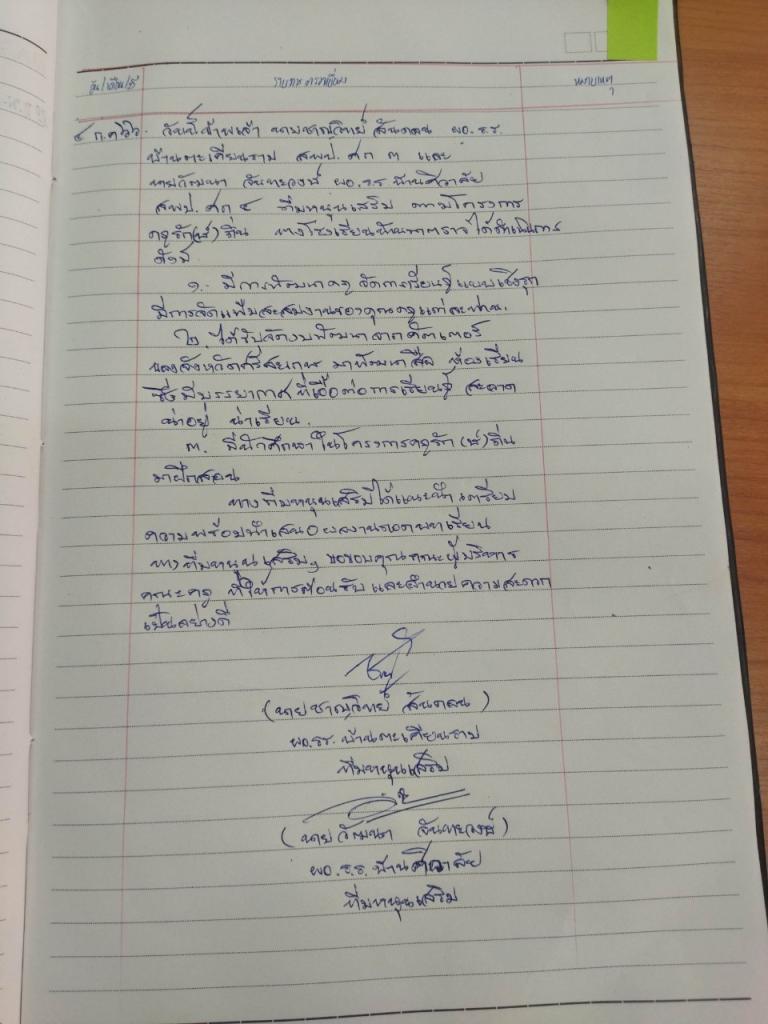 วัน/เดือน/ปี
รายการตรวจเยี่ยม
หมายเหตุ
๔ ก.ค ๖๖. วันนี้ข้าพเจ้า นายชาญวิทย์ สันดอน ผอ.ร.ร.
บ้านตะเคียนราม สพป. ศก ๓ และ
นายวัฒนา จันทะวงษ์ ผอ.รร บ้านศิวาลัย
สพป. ศก ๔ ทีมหนุนเสริม ตามโครงการ
ครูรัก(ษ์)ถิ่น ทางโรงเรียนบ้าน ได้ดำเนินการ
ดังนี้
๑. มีการพัฒนาครู จัดการเรียนรู้แบบเชิงรุก
มีการจัดแฟ้มสะสมงานของคุณครูแต่ละท่าน.
๒. ได้รับจัดงบพัฒนาจาก
ของจังหวัดศรีสะเกษ มาพัฒนาสื่อ ห้องเรียน
ซึ่งมีบรรยากาศที่เอื้อต่อการเรียนรู้ สะอาด
น่าอยู่ น่าเรียน.
๓. มีนักศึกษาในโครงการครูรัก(ษ์)ถิ่น
มาฝึกสอน
ทางทีมหนุนเสริมได้แนะนำ เตรียม
ความพร้อมนำเสนอผลงานถอดบทเรียน
ทางทีมหนุนเสริมฯ ขอขอบคุณคณะผู้บริหาร
คณะครู ที่ให้การต้อนรับ และอำนวยความสะดวก
เป็นอย่างดี
(นายชาญวิทย์ สันดอน)
ผอ.รร. บ้านตะเคียนราม
ทีมหนุนเสริม
(นายวัฒนา จันทะวงษ์)
ผอ.ร.ร. บ้านศิวาลัย
ทีมหนุนเสริม